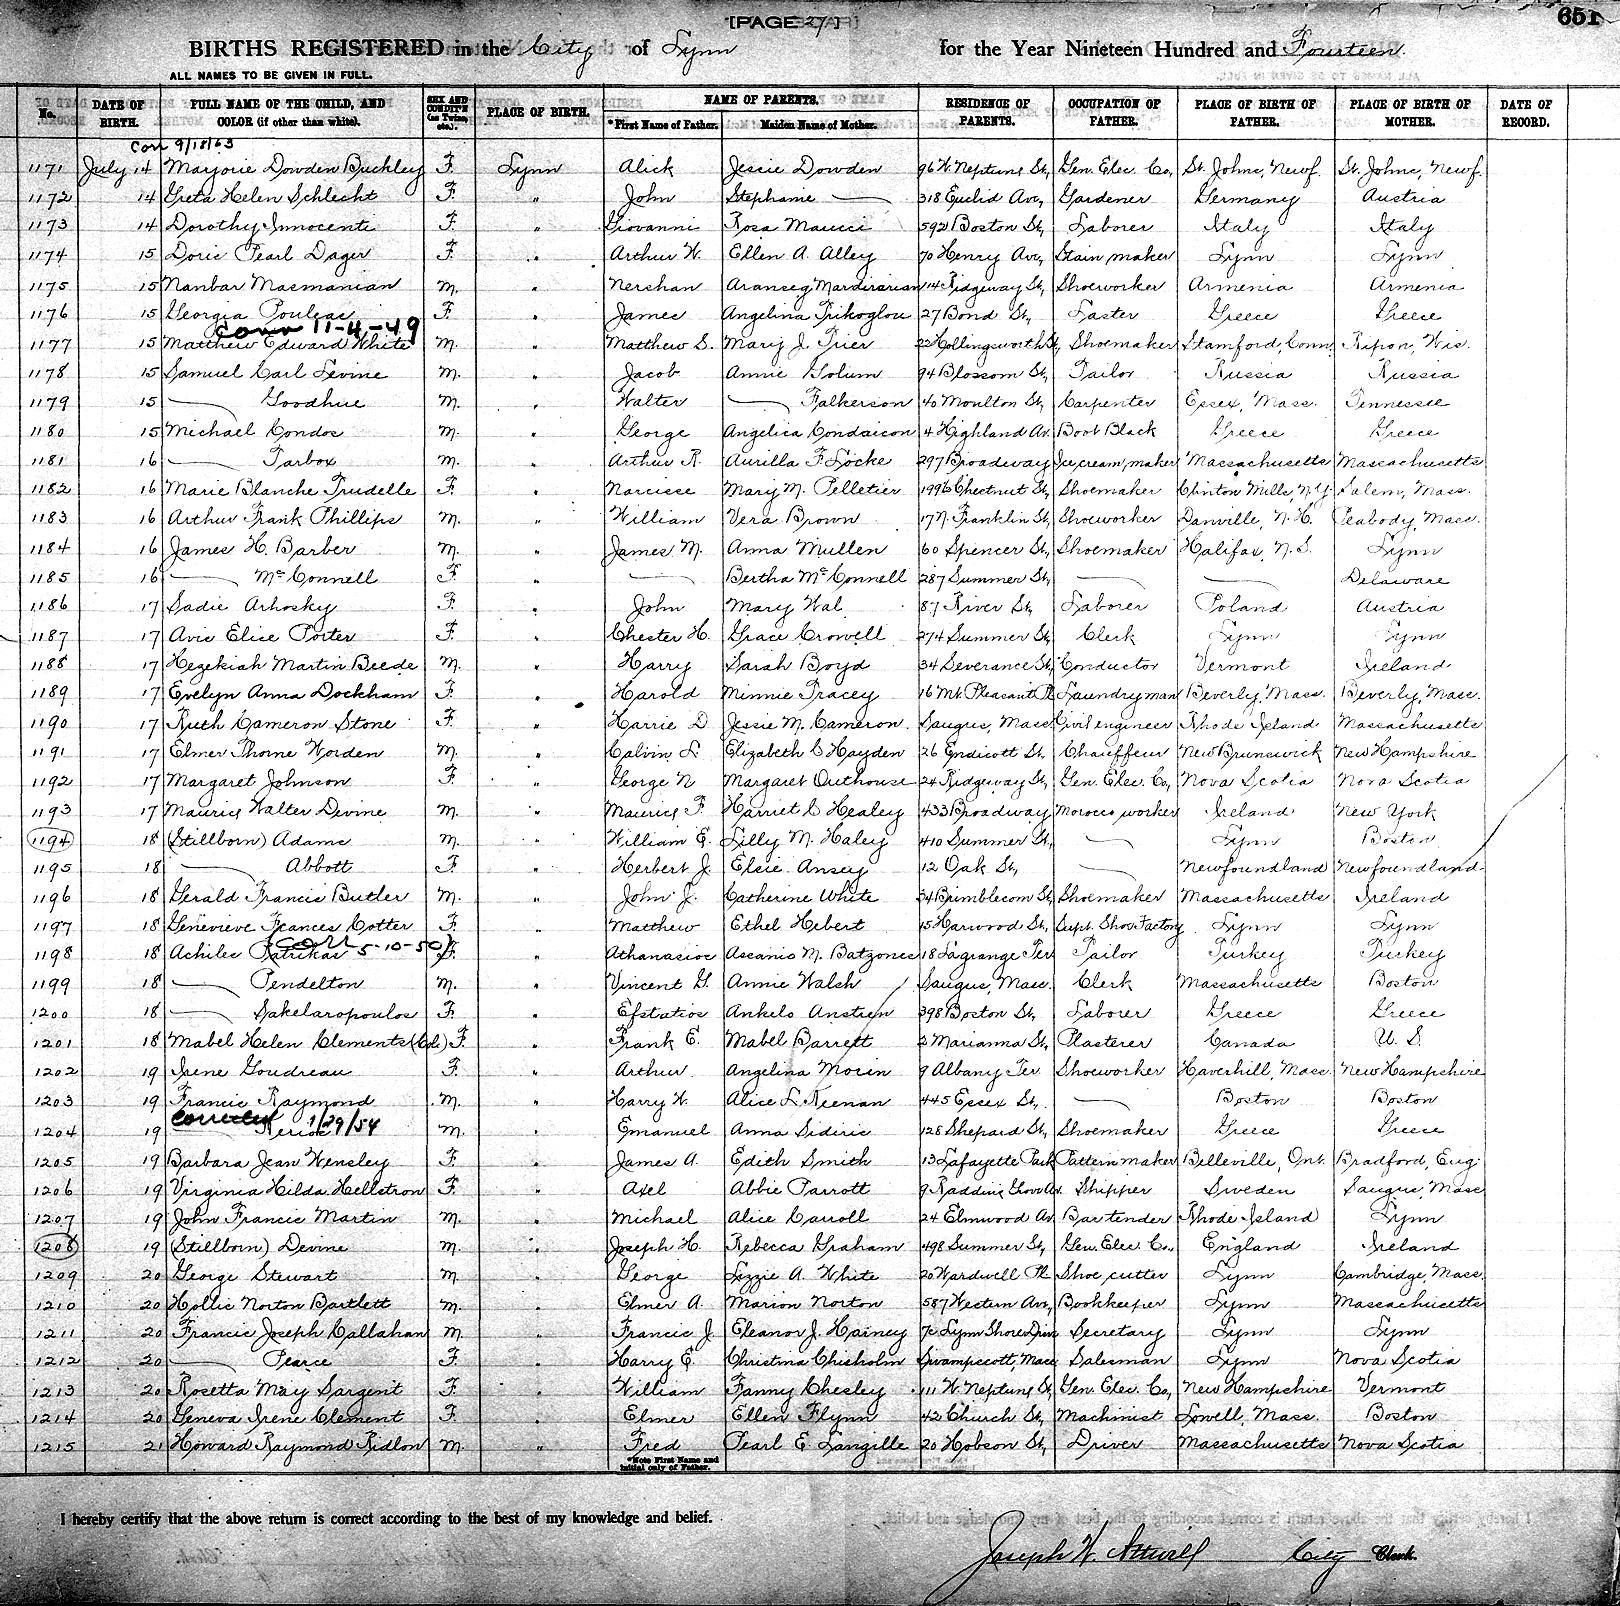 [PAGE 27] 651
BIRTHS REGISTERED in the City of Lynn for the Year Nineteen Hundred and Fourteen.
ALL NAMES TO BE GIVEN IN FULL.
No. DATE OF BIRTH. FULL NAME OF THE CHILD, AND COLOR (if other than white). SEX AND CONDIT'N (as Twins, etc.) PLACE OF BIRTH. NAME OF PARENTS. *First Name of Father. Maiden Name of Mother. RESIDENCE OF PARENTS. OCCUPATION OF FATHER. PLACE OF BIRTH OF FATHER. PLACE OF BIRTH OF MOTHER. DATE OF RECORD.
Corr 9/18/63
1171 July 14 Marjorie Dowden Buckley F. Lynn Alick Jessie Dowden 96 W. Neptune St, Gen. Elec. Co, St. Johns, Newf. St. Johns, Newf.
1172 14 Greta Helen Schlecht F. " John Stephanie — 318 Euclid Ave, Gardener Germany Austria
1173 14 Dorothy Innocenti F. " Giovanni Rosa Maucci 592 Boston St, Laborer Italy Italy
1174 15 Doris Pearl Dager F. " Arthur W. Ellen A. Alley 70 Henry Ave, Stain maker Lynn Lynn
1175 15 Nanbar Masmanian M. " Nershan Aranseg Mardirarian 114 Ridgeway St, Shoeworker Armenia Armenia
1176 15 Georgia Poulear F. " James Angelina Trikoglou 27 Bond St, Laster Greece Greece
Corr 11-4-49
1177 15 Matthew Edward White M. " Matthew S. Mary J. Trier 22 Hollingsworth St, Shoemaker Stamford, Conn. Ripon, Wis.
1178 15 Samuel Carl Levine M. " Jacob Annie Golum 94 Blossom St, Tailor Russia Russia
1179 15 — Goodhue M. " Walter — Falkerson 40 Moulton St, Carpenter Essex, Mass. Tennessee
1180 15 Michael Condos M. " George Angelica Condaicon 4 Highland Av. Boot Black Greece Greece
1181 16 — Tarbox M. " Arthur R. Aurilla F Locke 297 Broadway Ice cream, maker Massachusetts Massachusetts
1182 16 Marie Blanche Trudelle F. " Narcisse Mary M. Pelletier 199 Chestnut St, Shoemaker Clinton Mills, N.Y. Salem, Mass.
1183 16 Arthur Frank Phillips M. " William Vera Brown 17 N. Franklin St, Shoeworker Danville, N.H. Peabody, Mass.
1184 16 James H. Barber M. " James M. Anna Mullen 60 Spencer St, Shoemaker Halifax, N.S. Lynn
1185 16 — McConnell F. " — Bertha McConnell 287 Summer St, — — Delaware
1186 17 Sadie Arhosky F. " John Mary Wal 87 River St, Laborer Poland Austria
1187 17 Avis Elise Porter F. " Chester H. Grace Crowell 274 Summer St, Clerk Lynn Lynn
1188 17 Hezekiah Martin Beede M. " Harry Sarah Boyd 34 Severance St, Conductor Vermont Ireland
1189 17 Evelyn Anna Dockham F. " Harold Minnie Tracey 16 Mt. Pleasant Pl Laundryman Beverly, Mass. Beverly, Mass.
1190 17 Ruth Cameron Stone F. " Harrie D Jessie M. Cameron Saugus, Mass Civil engineer Rhode Island Massachusetts
1191 17 Elmer Thorne Worden M. " Calvin L. Elizabeth C Hayden 26 Endicott St. Chauffeur New Brunswick New Hampshire
1192 17 Margaret Johnson F. " George N Margaret Outhouse 24 Ridgeway St, Gen. Elec. Co, Nova Scotia Nova Scotia
1193 17 Maurice Walter Devine M. " Maurice F. Harriet C Healey 433 Broadway Morocco worker Ireland New York
1194 18 (Stillborn) Adams M. " William E. Lilly M. Haley 410 Summer St, — Lynn Boston
1195 18 — Abbott F. " Herbert J. Elsie Ansey 12 Oak St, — Newfoundland Newfoundland
1196 18 Gerald Francis Butler M. " John J. Catherine White 34 Brimblecom St, Shoemaker Massachusetts Ireland
1197 18 Genevieve Frances Cotter F. " Matthew Ethel Hebert 15 Harwood St, Supt. Shoe Factory Lynn Lynn
Corr 5-10-50
1198 18 Achiles Patrikas F. " Athanasios Ascanio M. Batzones 18 Lagrange Ter Tailor Turkey Turkey
1199 18 — Pendelton M. " Vincent G. Annie Walsh Saugus, Mass. Clerk Massachusetts Boston
1200 18 — Sakelaropoulos F. " Efstatios Ankelo Anstien 398 Boston St, Laborer Greece Greece
1201 18 Mabel Helen Clements (Col.) F. " Frank E. Mabel Barrett 2 Marianna St, Plasterer Canada U.S.
1202 19 Irene Goudreau F. " Arthur Angelina Morin 9 Albany Ter. Shoeworker Haverhill, Mass. New Hampshire
1203 19 Francis Raymond M. " Harry W. Alice L. Keenan 445 Essex St, — Boston Boston
Corrected 1/29/54
1204 19 M. " Emanuel Anna Sidiris 128 Shepard St, Shoemaker Greece Greece
1205 19 Barbara Jean Wensley F. " James A. Edith Smith 13 Lafayette Park Pattern maker Belleville, Ont. Bradford, Eng.
1206 19 Virginia Hilda Hellstron F. " Axel Abbie Parrott 9 Redding Grove Av. Shipper Sweden Saugus, Mass
1207 19 John Francis Martin M. " Michael Alice Carroll 24 Elmwood Av Bartender Rhode Island Lynn
1208 19 (Stillborn) Devine M. " Joseph H. Rebecca Graham 498 Summer St, Gen. Elec. Co., England Ireland
1209 20 George Stewart M. " George Lizzie A. White 20 Wardwell Pl. Shoe cutter Lynn Cambridge, Mass.
1210 20 Hollis Norton Bartlett M. " Elmer A. Marion Norton 587 Western Ave, Bookkeeper Lynn Massachusetts
1211 20 Francis Joseph Callahan M. " Francis J. Eleanor J. Hainey Lynn Shore Drive Secretary Lynn Lynn
1212 20 — Pearce F. " Harry E. Christina Chisholm Swampscott, Mass Salesman Lynn Nova Scotia
1213 20 Rosetta May Sargent F. " William Fanny Chesley 111 W. Neptune St, Gen. Elec. Co, New Hampshire Vermont
1214 20 Geneva Irene Clement F. " Elmer Ellen Flynn 42 Church St, Machinist Lowell, Mass. Boston
1215 21 Howard Raymond Ridlon M. " Fred Pearl E Langille 20 Hobson St, Driver Massachusetts Nova Scotia
*Note First Name and initial only of Father.
I hereby certify that the above return is correct according to the best of my knowledge and belief.
Joseph W. Attwill City Clerk.